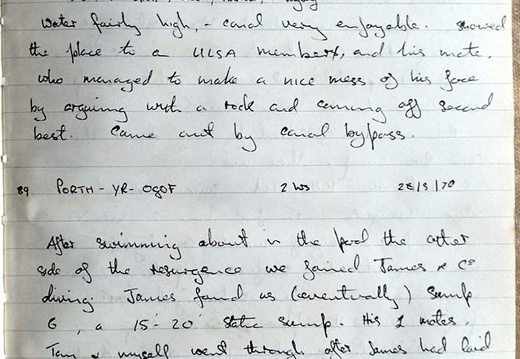 water fairly high, - canal very enjoyable. showed
the place to a ULSA member, and his mate.
who managed to make a nice mess of his face
by arguing with a rock and coming off second
best. Came out by canal bypass.
89 PORTH-YR-OGOF 2 hrs /70
After swimming about in the pool the other
side of the resurgence we joined James & Co
diving. James found us (eventually) Sump
6, a 15-20 static sump. His 2 mates,
Tom & myself went through after James had laid